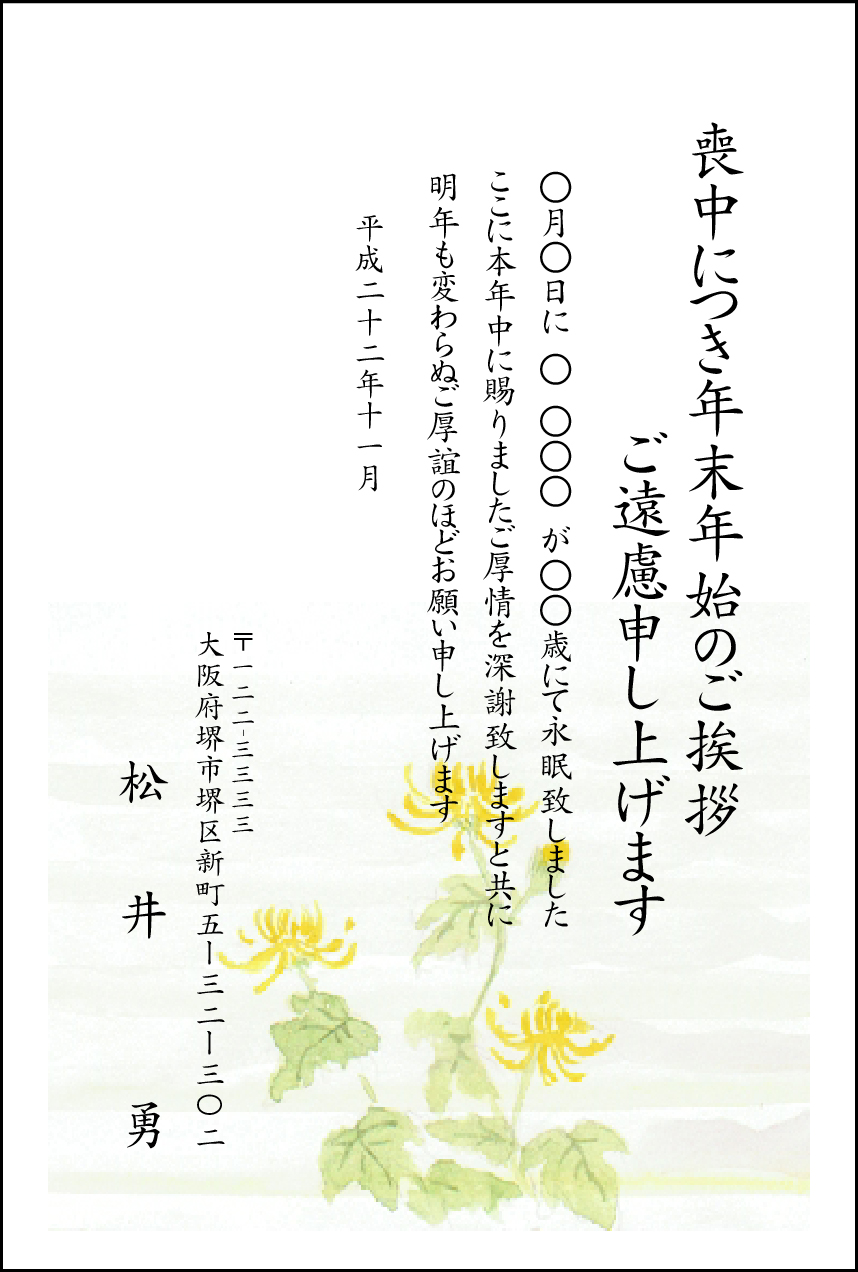 喪中につき年末年始のご挨拶
ご遠慮申し上げます
〇月〇日に 〇 〇〇〇 が〇〇歳にて永眠致しました
ここに本年中に賜りましたご厚情を深謝致しますと共に
明年も変わらぬご厚誼のほどお願い申し上げます
平成二十二年十一月
〒一二二-三三三三
大阪府堺市堺区新町五ー三二ー三〇二
松井勇